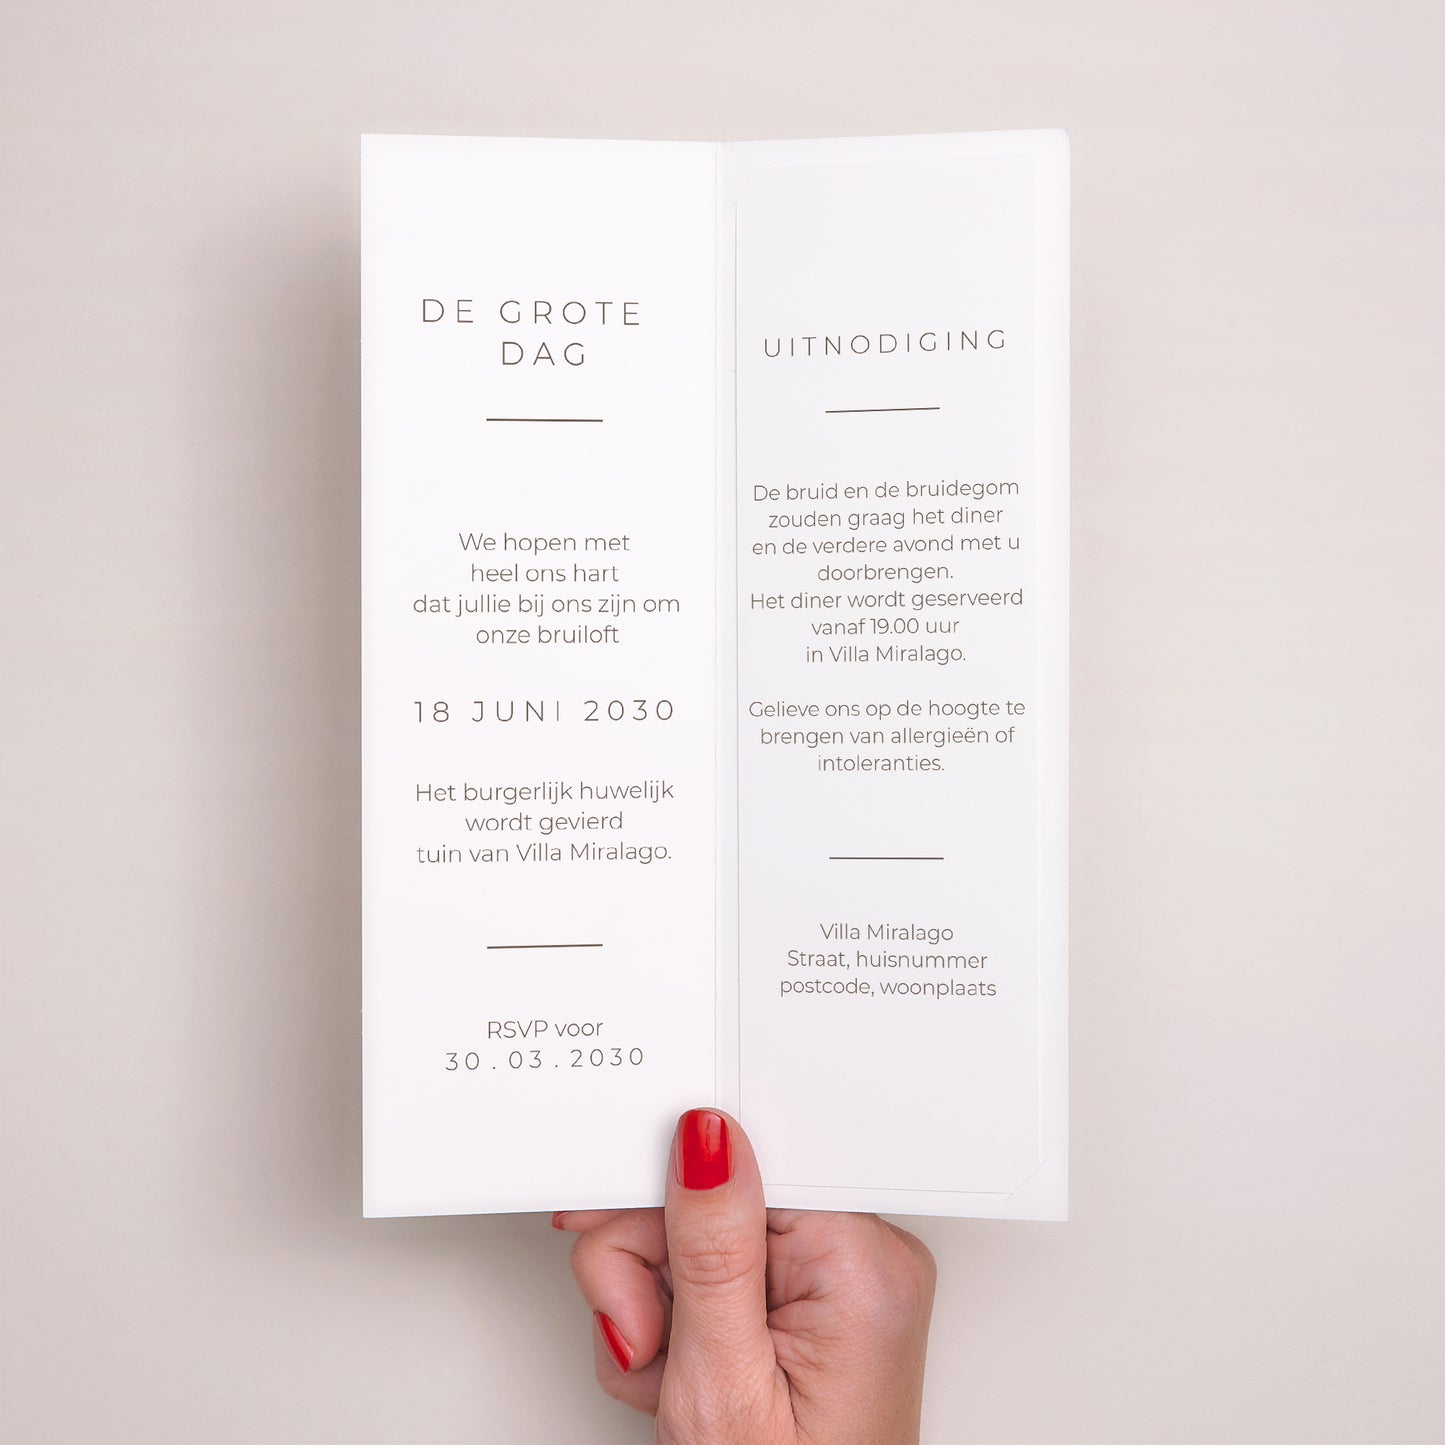 DE GROTE
DAG
We hopen met
heel ons hart
dat jullie bij ons zijn om
onze bruiloft
18 JUNI 2030
Het burgerlijk huwelijk
wordt gevierd
tuin van Villa Miralago.
RSVP voor
30.03.2030
UITNODIGING
De bruid en de bruidegom
zouden graag het diner
en de verdere avond met u
doorbrengen.
Het diner wordt geserveerd
vanaf 19.00 uur
in Villa Miralago.
Gelieve ons op de hoogte te
brengen van allergieën of
intoleranties.
Villa Miralago
Straat, huisnummer
postcode, woonplaats